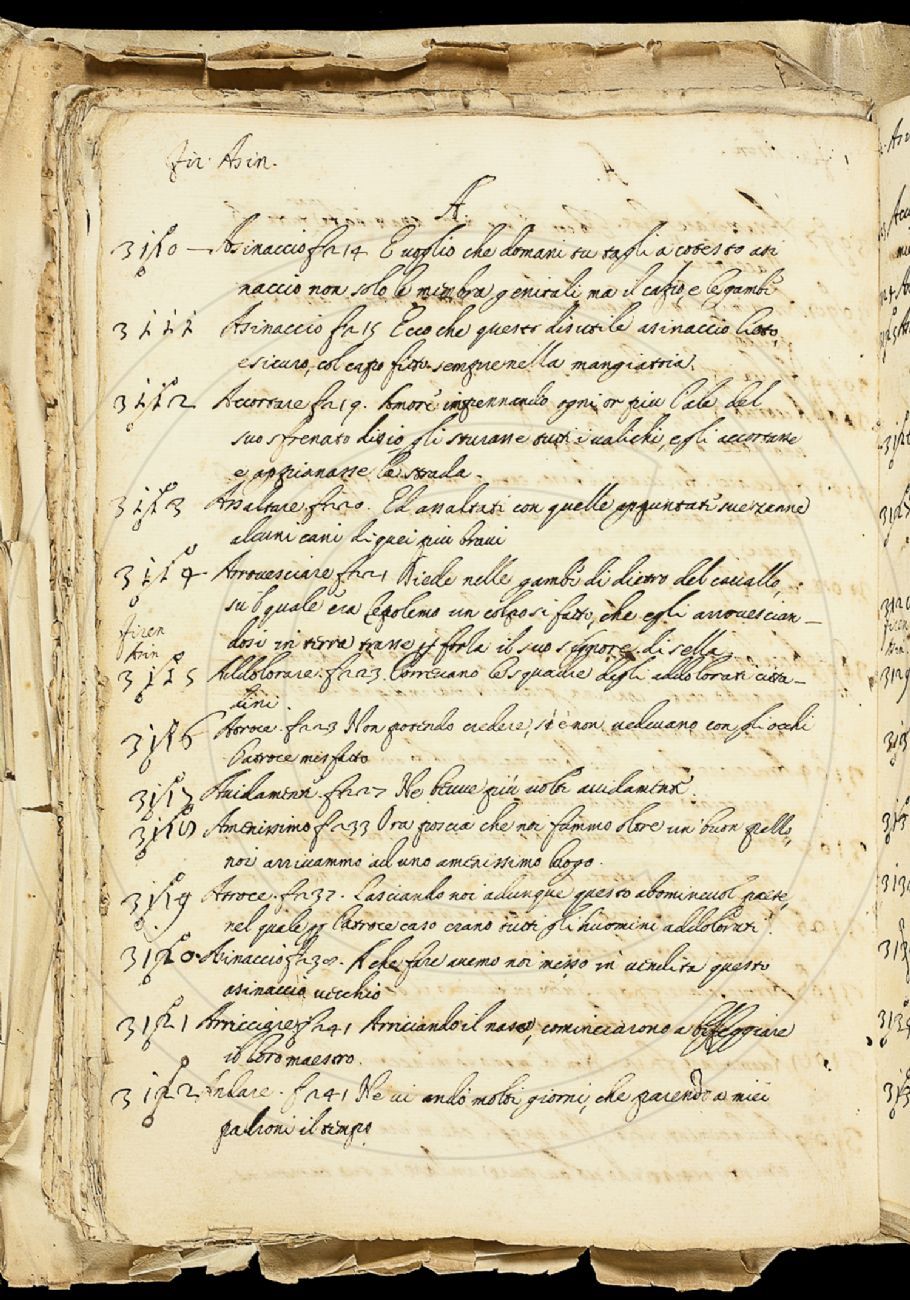 Fir: Asin.
A
3110 Asinaccio fr214 E voglio che domani tu tagli a cotesto asi
naccio non solo le membra genitali ma il capo, e le gambe
3111 Asinaccio fr215 Ecco che questo disutile asinaccio lieto,
e sicuro, col capo fitto sempre nella mangiatoia.
3112 Accortare fr219. Amore impennando ogni or piu l'ale del
suo sfrenato disio gli sturasse tutti i valichi, e gli accortasse
e appianasse la strada
3113 Assaltare fr220. Ed assaltati con quelle appuntate verzanne
alcuni cani di quei piu bravi
3114 Arrovesciare fr221 Diede nelle gambe di dietro del cavallo,
su'l quale era Lepolemo un colpo si fatto, che egli arrovescian-
dosi in terra trasse per forza il suo signore di sella
Firen
Asin
3115 Addolorare. fr223. Correvano le squadre degli addolorati citta-
dini
3116 Atroce. fr223 Non potendo credere, se non vedevano con gli occhi
l'atroce misfatto
3117 Avidamente fr227 Ne bevve più volte avidamente.
3118 Amenissimo fr233 Ora poscia che noi fummo iti un buon pezzo,
noi arrivammo ad uno amenissimo luogo.
3119 Atroce. fr237. Lasciando noi adunque questo abominevol paese,
nel quale per l'atroce caso erano tutti gli huomini addolorati
3120 Asinaccio fr238. A che fare avemo noi messo in vendita questo
asinaccio vecchio
3121 Arricciare fr241 Arricciando il naso, cominciarono a beffeggiare
il loro maestro.
3122 Andare. fr241 Ne vi andò molti giorni, che parendo a' miei
padroni il tempo